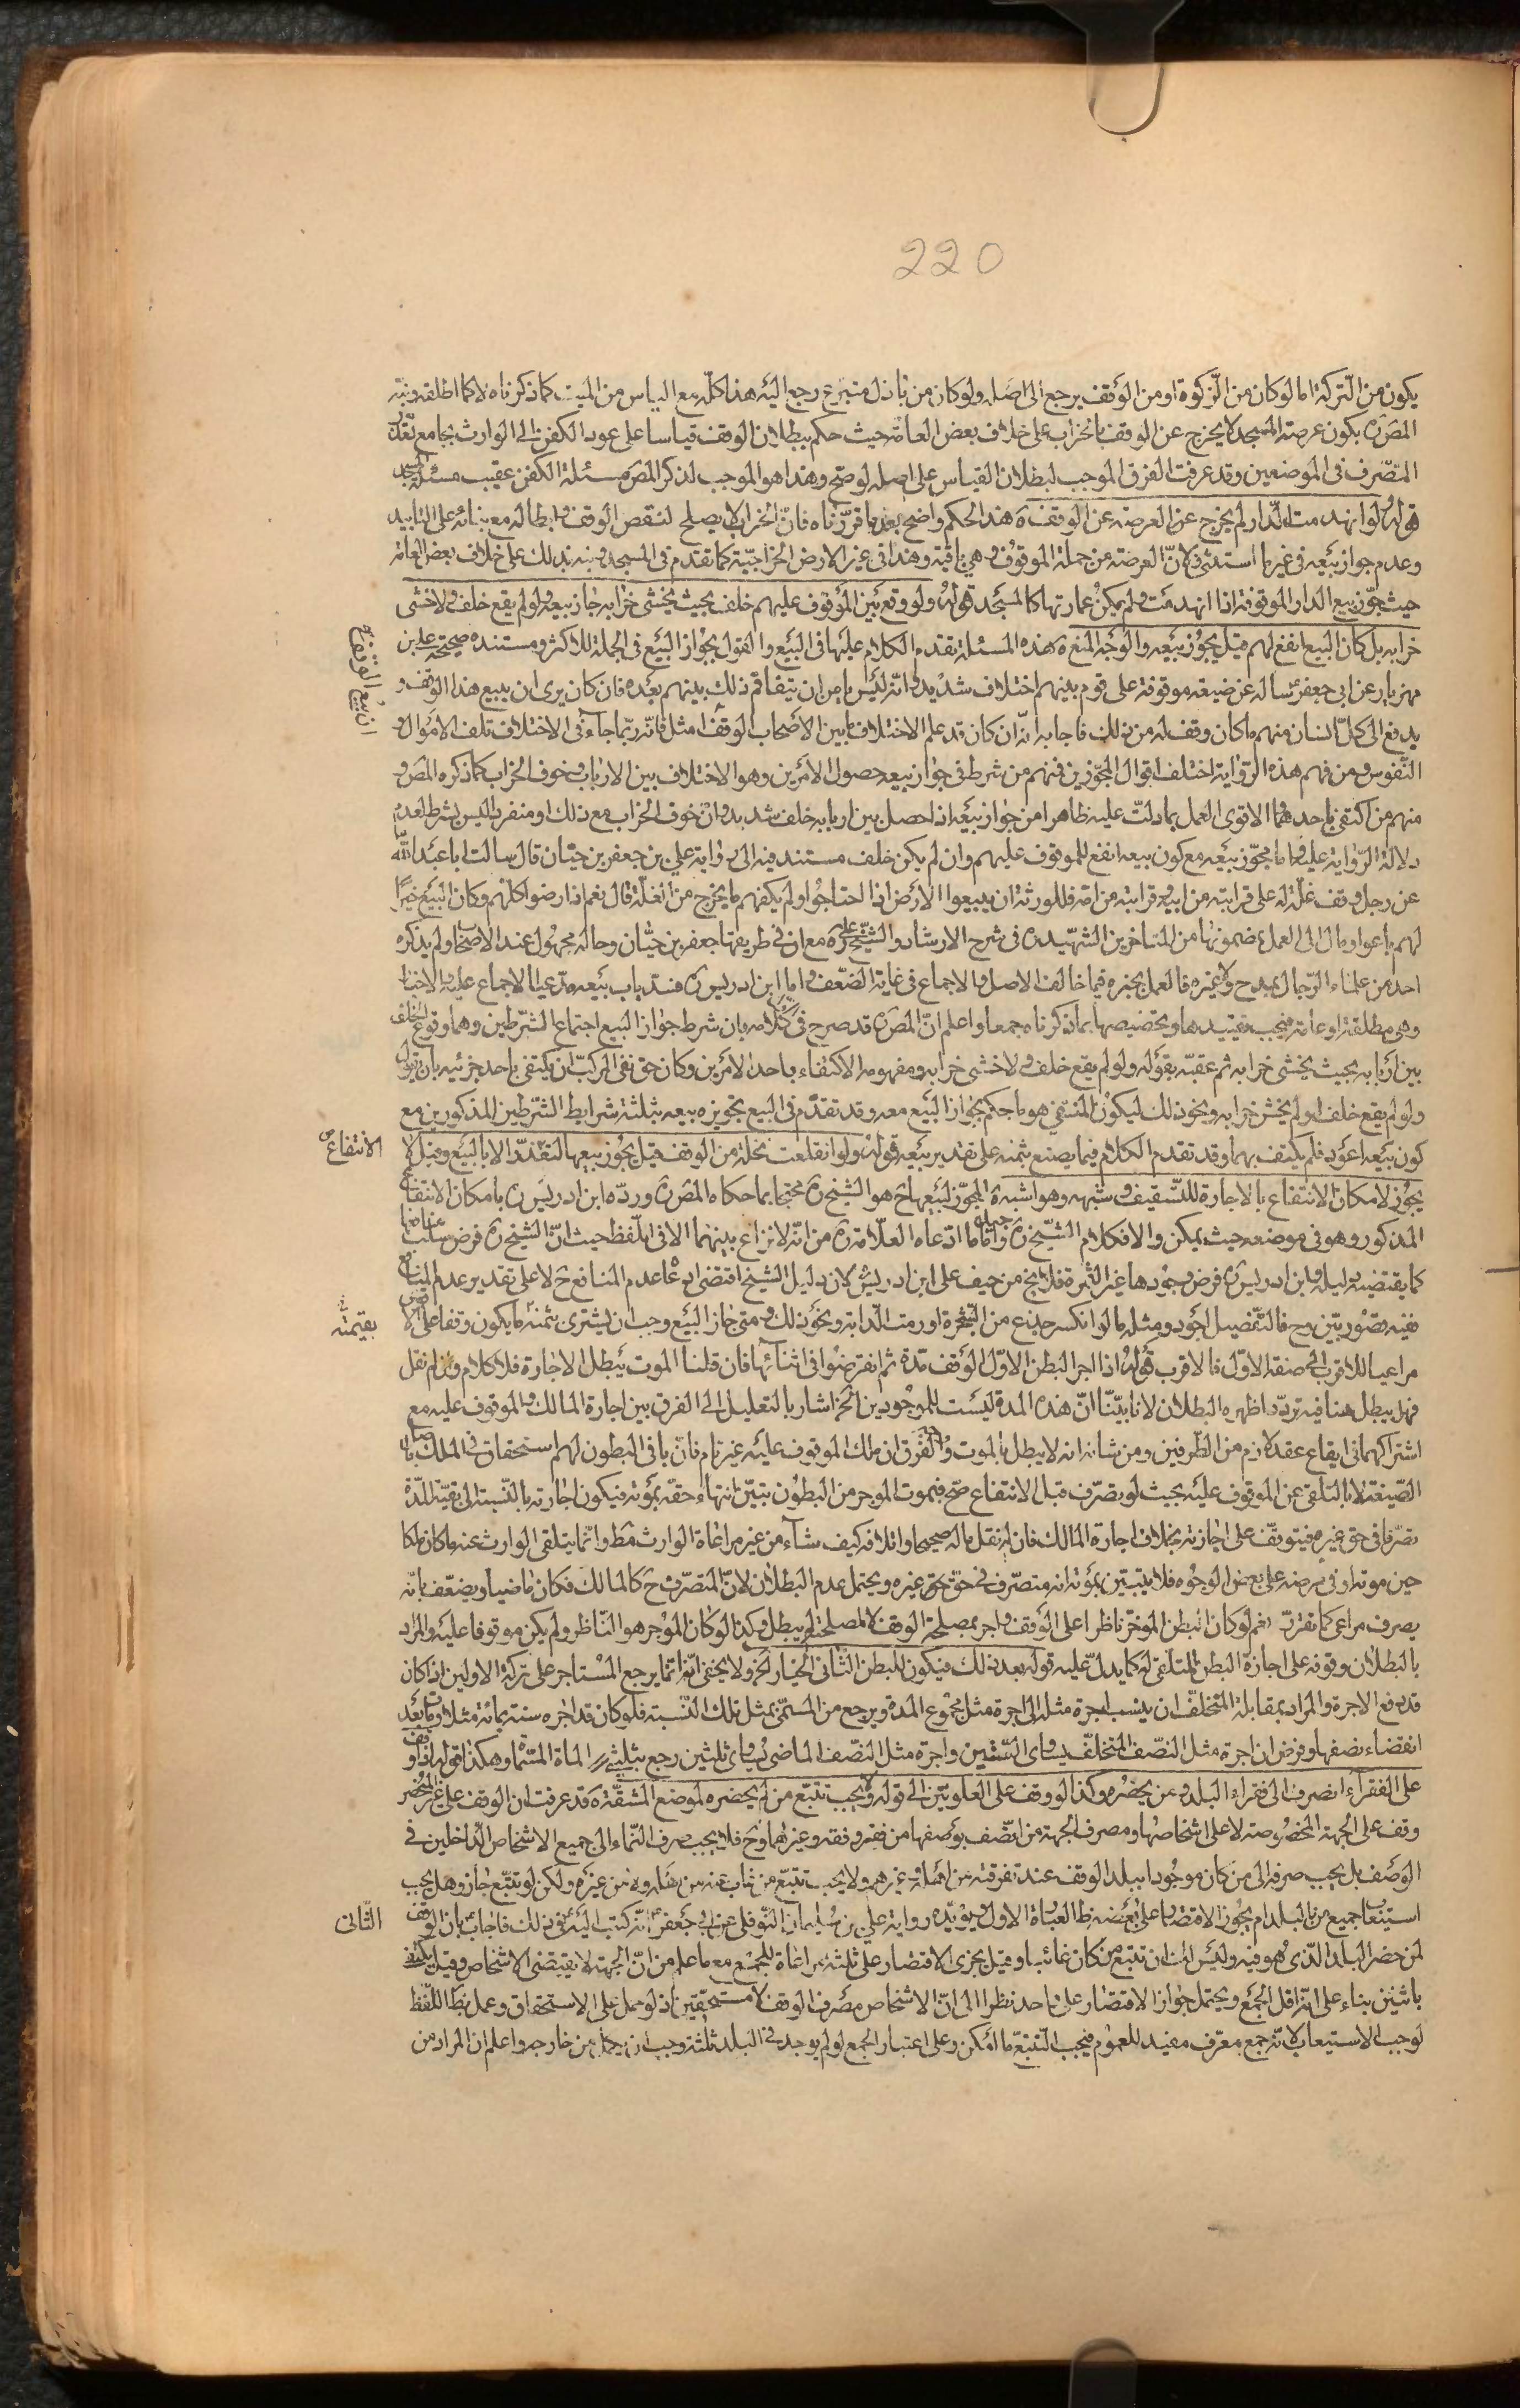 220
يكون من التركة اما لو كان من الزكوة او من الوقف يرجع الى اصله ولو كان من باذل متبرع رجع اليه هذا كله مع الياس من الميت كما ذكرناه لا كما اطلقه ونبه
المصره بكون عرصة المسجد لا يخرج عن الوقف بالخراب على خلاف بعض العامة حيث حكم ببطلان الوقف قياسا على عود الكفن الى الوارث بجامع تعذر
المتصرف فى الموضعين وقد عرفت الفرق الموجب لبطلان القياس على اصله لو صح وهذا هو الموجب لذكر المصره مسئلة الكفن عقيب مسئلة المسجد
قوله لو انهدمت الدار لم يخرج عن العرصة عن الوقف ة هذا الحكم واضح بعد ما قررناه فان الخراب لا يصلح لنقص الوقف وابطاله مع بنائه على التابيد
وعدم جواز بيعه فى غير ما استثنى ولان العرصة من جملة الموقوف وهي باقية وهذا فى غير الارض الخراجية كما تقدم فى المسجد ونبه بذلك على خلاف بعض العامة
حيث جوز بيع الدار الموقوفة اذا انهدمت ولم يمكن عمارتها كالمسجد قوله ولو وقع بين الموقوف عليهم خلف بحيث يخشى خرابه جاز بيعه ولو لم يقع خلف ولا خشى
خرابه بل كان البيع انفع لهم قيل يجوز بيعه والوجه المنع ة هذه المسئلة تقدم الكلام عليها فى البيع والقول بجواز البيع فى الجملة للاكثر ومستنده صحيحة على بن
مهزيار عن ابى جعفر ع سأله عن ضيعة موقوفة على قوم بينهم اختلاف شديد وانه ليس يامن ان يتفاقم ذلك بينهم بعده فان كان يرى ان يبيع هذا الوقف و
ان بيع الوقف
يدفع الى كل انسان منهم ما كان وقف له من ذلك فاجابه انه ان كان قد علم الاختلاف ما بين الاصحاب الوقف امثل فانه ربما جاء فى الاختلاف تلف الاموال و
النفوس ومن فهم هذه الرواية اختلف اقوال المجوزين فمنهم من شرط فى جواز بيعه حصول الامرين وهو الاختلاف بين الارباب وخوف الخراب كما ذكره المصره و
منهم من اكتفى باحدهما والاقوى العمل بما دلت عليه ظاهرا من جواز بيعه اذا حصل بين اربابه خلف شديد وان خوف الخراب مع ذلك او منفردا ليس بشرط لعدم
دلالة الرواية عليه واما مجوز بيعه مع كون بيعه انفع للموقوف عليهم وان لم يكن خلف مستند فيه الى رواية على بن جعفر بن حيان قال سالت ابا عبد الله
عن رجل وقف غلة له على قرابته من ابيه وقرابته من امه فللورثة ان يبيعوا الارض اذا احتاجوا ولم يكفهم ما يخرج من الغلة قال نعم اذا رضوا كلهم وكان البيع خيرا
لهم باعوا ومال الى العمل بمضمونها من المتاخرين الشهيد ره فى شرح الارشاد والشيخ على ره مع ان فى طريقها جعفر بن حيان وحاله مجهول عند الاصحاب ولم يذكره
احد من علماء الرجال بمدح ولا غيره فالعمل بخبره فيما خالف الاصل والاجماع فى غاية الضعف واما ابن ادريس ره فسد باب بيعه مدعيا الاجماع عليه والاخبار
وهى مطلقة او عامة فيجب تقييدها وتخصيصها بما ذكرناه جمعا واعلم ان المصره قد صرح فى كلامه بان شرط جواز البيع اجتماع الشرطين وهما وقوع الخلف
بين اربابه بحيث يخشى خرابه ثم عقبه بقوله ولو لم يقع خلف ولا خشى خرابه ومفهومه الاكتفاء باحد الامرين وكان حق نفى المركب ان يكتفى باحد جزئيه بان يقول
ولو لم يقع خلف او لم يخش خرابه ونحو ذلك ليكون المنتفى هو ما حكم بجواز البيع معه وقد تقدم فى البيع تجويزه بيعه بثلثة شرايط الشرطين المذكورين مع
كون بيعه اعود فلم يكتف بهما وقد تقدم الكلام فيما يصنع بثمنه على تقدير بيعه قوله ولو انقلعت نخلة من الوقف قيل يجوز بيعها لتعذر الا بالبيع وقيل لا
الانتفاع
يجوز لامكان الانتفاع بالاجارة للتسقيف وشبهه وهو اشبه ة المجوز لبيعها ح هو الشيخ ره محتجا بما حكاه المصره ورده ابن ادريس ره بامكان الانتفاع
المذكور وهو فى موضعه حيث يمكن والا فكلام الشيخ ره واما ما ادعاه العلامة ره من انه لا نزاع بينهما الا فى اللفظ حيث ان الشيخ ره فرض سلب منافعها
كما يقتضيه دليله وابن ادريس ره فرض وجودها غير الثمرة فلا يخ من حيف على ابن ادريس لان دليل الشيخ اقتضى ادعاء عدم المنافع ح لا على تقدير عدم المنافع
ففيه قصور بين وح فالتفصيل اجود ومثله ما لو انكسر جذع من الشجرة او زمنت الدابة ونحو ذلك ومتى جاز البيع وجب ان يشترى بثمنه ما يكون وقفا على الاقرب
بقيمته
مراعيا للاقرب الى صفة الاول فالاقرب قوله اذا اجر البطن الاول الوقف مدة ثم انقرضوا فى اثنائها فان قلنا الموت يبطل الاجارة فلا كلام وان لم نقل
فهل يبطل هنا فيه تردد اظهره البطلان لانا بينا ان هذه المدة ليست للموجودين الخ اشار بالتعليل الى الفرق بين اجارة المالك والموقوف عليه مع
اشتراكهما فى ايقاع عقد لازم من الطرفين ومن شانه انه لا يبطل بالموت والفرق ان ملك الموقوف عليه غير تام فان باقى البطون لهم استحقاق فى الملك باصل
الصيغة لا بالتلقى عن الموقوف عليه بحيث لو تصرف قبل الانتفاع صح فبموت الموجر من البطون تبين انتهاء حقه بموته فيكون اجارته بالنسبة الى بقية المدة
تصرفا فى حق غيره فيتوقف على اجازته بخلاف اجارة المالك فان له نقل ماله صحيحا واتلافه كيف شاء من غير مراعاة الوارث مط وانما يتلقى الوارث عنه ما كان ملكا
حين موته او فى مرضه على بعض الوجوه فلا يتبين بموته انه متصرف فى حق غيره ويحتمل عدم البطلان لان المتصرف ح كالمالك فكان ماضيا ويضعف بانه
يصرف مراعى كما تقرر نعم لو كان البطن الموجر ناظرا على الوقف واجر لمصلحة الوقف لا لمصلحته لم يبطل وكذا لو كان الموجر هو الناظر ولم يكن موقوفا عليه والمراد
بالبطلان وقوفه على اجازة البطن المتلقى له كما يدل عليه قوله بعد ذلك فيكون للبطن الثانى الخيار الخ ولا يخفى انه انما يرجع المستاجر على تركة الاولين اذا كان
قد دفع الاجرة والمراد بمقابلة المتخلف ان ينسب اجرة مثله الى اجرة مثل مجموع المدة ويرجع من المسمى بمثل تلك النسبة فلو كان قد اجره سنة بمائة مثلا ومات بعد
انقضاء نصفها وفرض ان اجرة مثل النصف المتخلف يساوى الستين واجرة مثل النصف الماضى يساوى ثلثين رجع بثلثى المائة المسمى وهكذا قوله اذا وقف
على الفقراء انصرف الى فقراء البلد ومن يحضره وكذا لو وقف على العلويين الى قوله ولا يجب تتبع من لم يحضره لموضع المشقة ة قد عرفت ان الوقف على غير المنحصر
وقف على الجهة المخصوصة لا على اشخاصها ومصرف الجهة من اتصف بوصفها من فقر وفقه وغيرهما وح فلا يجب صرف النماء الى جميع الاشخاص الداخلين فى
الوصف بل يجب صرفه الى من كان موجودا ببلد الوقف عند تفرقته من اهله وغيرهم ولا يجب تتبع من غاب عنه من اهله ولا من غيره ولكن لو تتبع جاز وهل يجب
استيعاب جميع من بالبلد ام يجوز الاقتصار على بعضه ظ العبارة الاول ويؤيده رواية على بن سليمان النوفلى عن ابى جعفر ع انه كتب اليه فى ذلك فاجاب بان الوقف
الثانى
لمن حضر البلد الذى هو فيه وليس لك ان تتبع من كان غائبا وقيل يجزى الاقتصار على ثلثة مراعاة للجمع مع ما علم من ان الجهة لا يقتضى الاشخاص وقيل يكتفى
باثنين بناء على انه اقل الجمع ويحتمل جواز الاقتصار على واحد نظرا الى ان الاشخاص مصرف الوقف لا مستحقين اذ لو حمل على الاستحقاق وعمل بظ اللفظ
لوجب الاستيعاب لانه جمع معرف مفيد للعموم فيجب التتبع ما امكن وعلى اعتبار الجمع لو لم يوجد فى البلد ثلثة وجب ان يجعل من خارجه واعلم ان المراد من